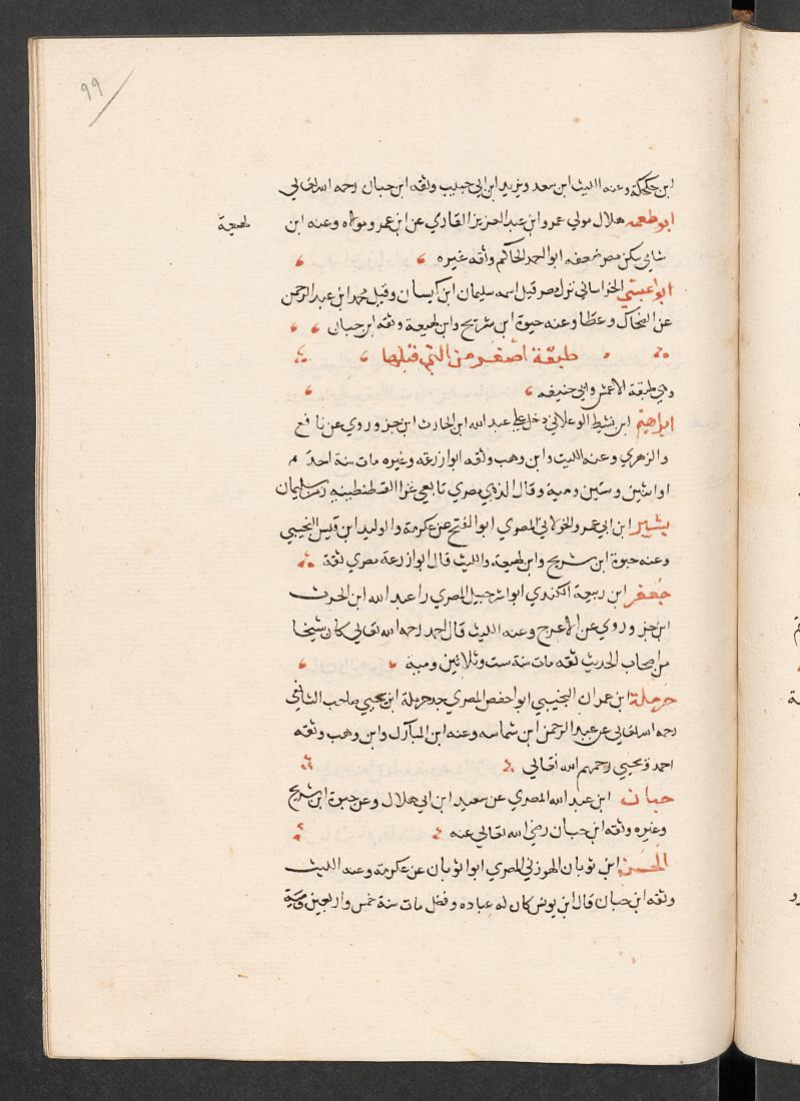 99
ابن جحكلة وعنه الليث ابن سعد ويزيد ابن ابي حبيب وثقه ابن حبان رحمه الله تعالى
ابو طعمه هلال مولى عمرو ابن عبد العزيز القاري عن ابن عمر ومولاه وعنه ابن
لهيعة
شامي سكن مصر ضعفه ابو احمد الحاكم وثقه غيره
ابو اعيسي الخراساني نزل مصر قيل اسمه سليمان ابن كيسان وقيل محمد ابن عبد الرحمن
عن الضحاك وعطا وعنه حيوة ابن شريح وابن لهيعة وثقه ابن حبان
طبقة أصغر من التي قبلها
وهي طبقة الاعمش وابي حنيفه
ابراهيم ابن نشيط الوعلاني دخل علي عبد الله ابن الحارث ابن جزو روي عن نافع
والزهري وعنه الليث وابن وهب وثقه ابوا زرعه وغيره مات سنة احد م
او اثنين وستين وميه وقال الذهبي مصري تابعي غزا القسطنطينيه زمن سليمان
بشير ابن ابي عمرو الخولاني المصري ابو الفتح عن عكرمة والوليد ابن قيس التجيبي
وعنه حيوة ابن شريح وابن لهيعة والليث قال ابوا زرعة مصري ثقة
جعفر ابن ربيعة الكندي ابوا شرحبيل المصري را عبد الله ابن الحرث
ابن جزو روي عن الاعرج وعنه الليث قال احمد رحمه الله تعالي كان شيخا
من اصحاب الحديث ثقه مات سنة ست وثلاثين وميه
حرملة ابن عمران التجيبي ابوا حفص المصري جد حرملة ابن يحيي صاحب الشافي
رحمه الله تعالي عن عبد الرحمن ابن شماسه وعنه ابن المبارك وابن وهب وثقه
احمد ويحيي رحمهم الله تعالي
حبان ابن عبد الله المصري عن سعيد ابن ابي هلال وعن حيوة ابن شريح
وغيره وثقه ابن حبان رضي الله تعالي عنه
الحسن ابن ثوبان الهوزني المصري ابوا ثوبان عن عكرمة وعنه الليث
وثقه ابن حبان قال ابن يونس كان له عباده وفضل مات سنة خمس واربعين وميه